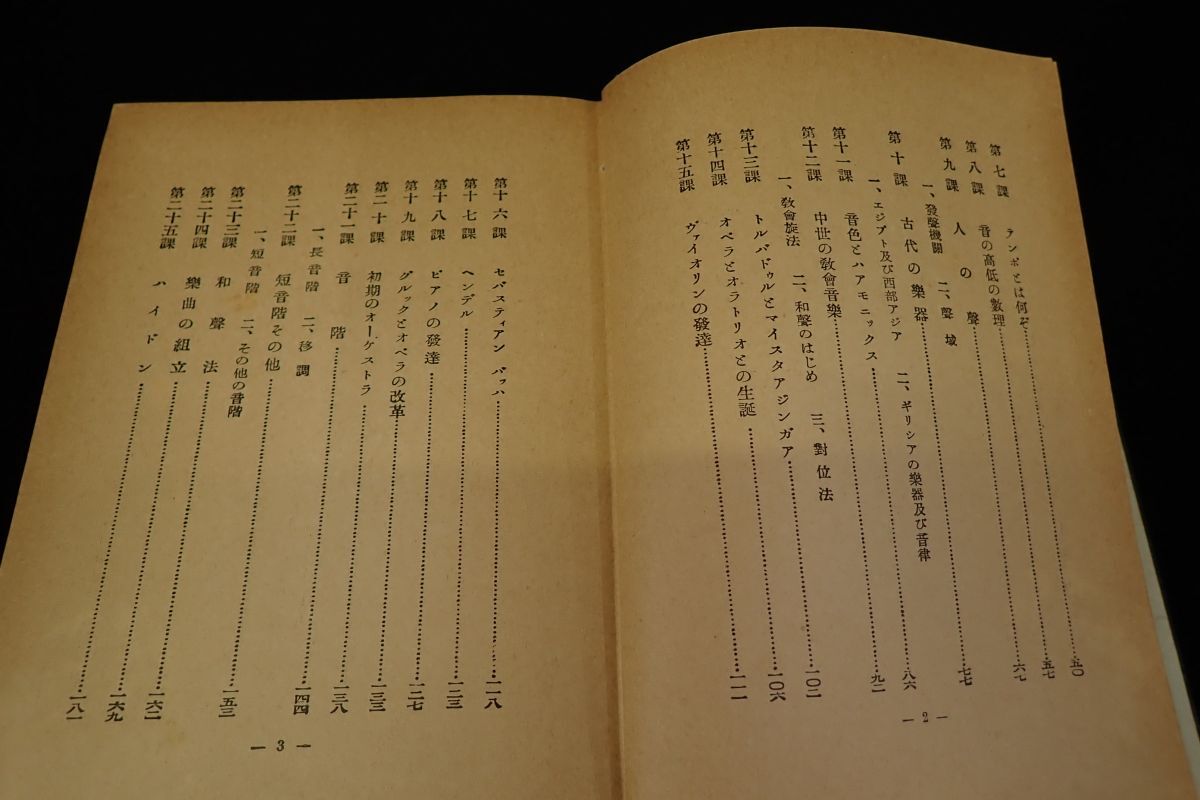 第七課 テンポとは何ぞ……五〇
第八課 音の高低の數理……五七
第九課 人の聲……六七
一、發聲機關 二、聲域
第十課 古代の樂器……七七
一、エジプト及び西部アジア 二、ギリシアの樂器及び音律
第十一課 音色とハアモニックス……八六
第十二課 中世の敎會音樂……九二
一、敎會旋法 二、和聲のはじめ 三、對位法
第十三課 トルバドゥルとマイスタアジンガア……一〇二
第十四課 オペラとオラトリオとの生誕……一〇六
第十五課 ヴァイオリンの發達……一一一
— 2 —
第十六課 セバスティアン バッハ……一一八
第十七課 ヘンデル……一二三
第十八課 ピアノの發達……一二七
第十九課 グルックとオペラの改革……一三三
第二十課 初期のオーケストラ……一三八
第二十一課 音階……一四四
一、長音階 二、移調
第二十二課 短音階その他……一五三
一、短音階 二、その他の音階
第二十三課 和聲法……一六二
第二十四課 樂曲の組立……一六九
第二十五課 ハイドン……一八一
— 3 —